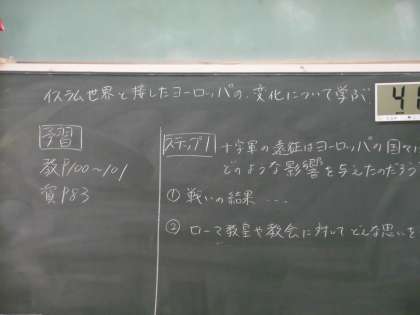 イスラム世界と接したヨーロッパの、変化について学ぶ
予習
教P100～101
資P83
ステップ1 十字軍の遠征はヨーロッパの国々
どのような影響を与えたのだろう
① 戦いの結果・・・
② ローマ教皇や教会に対してどんな思いを